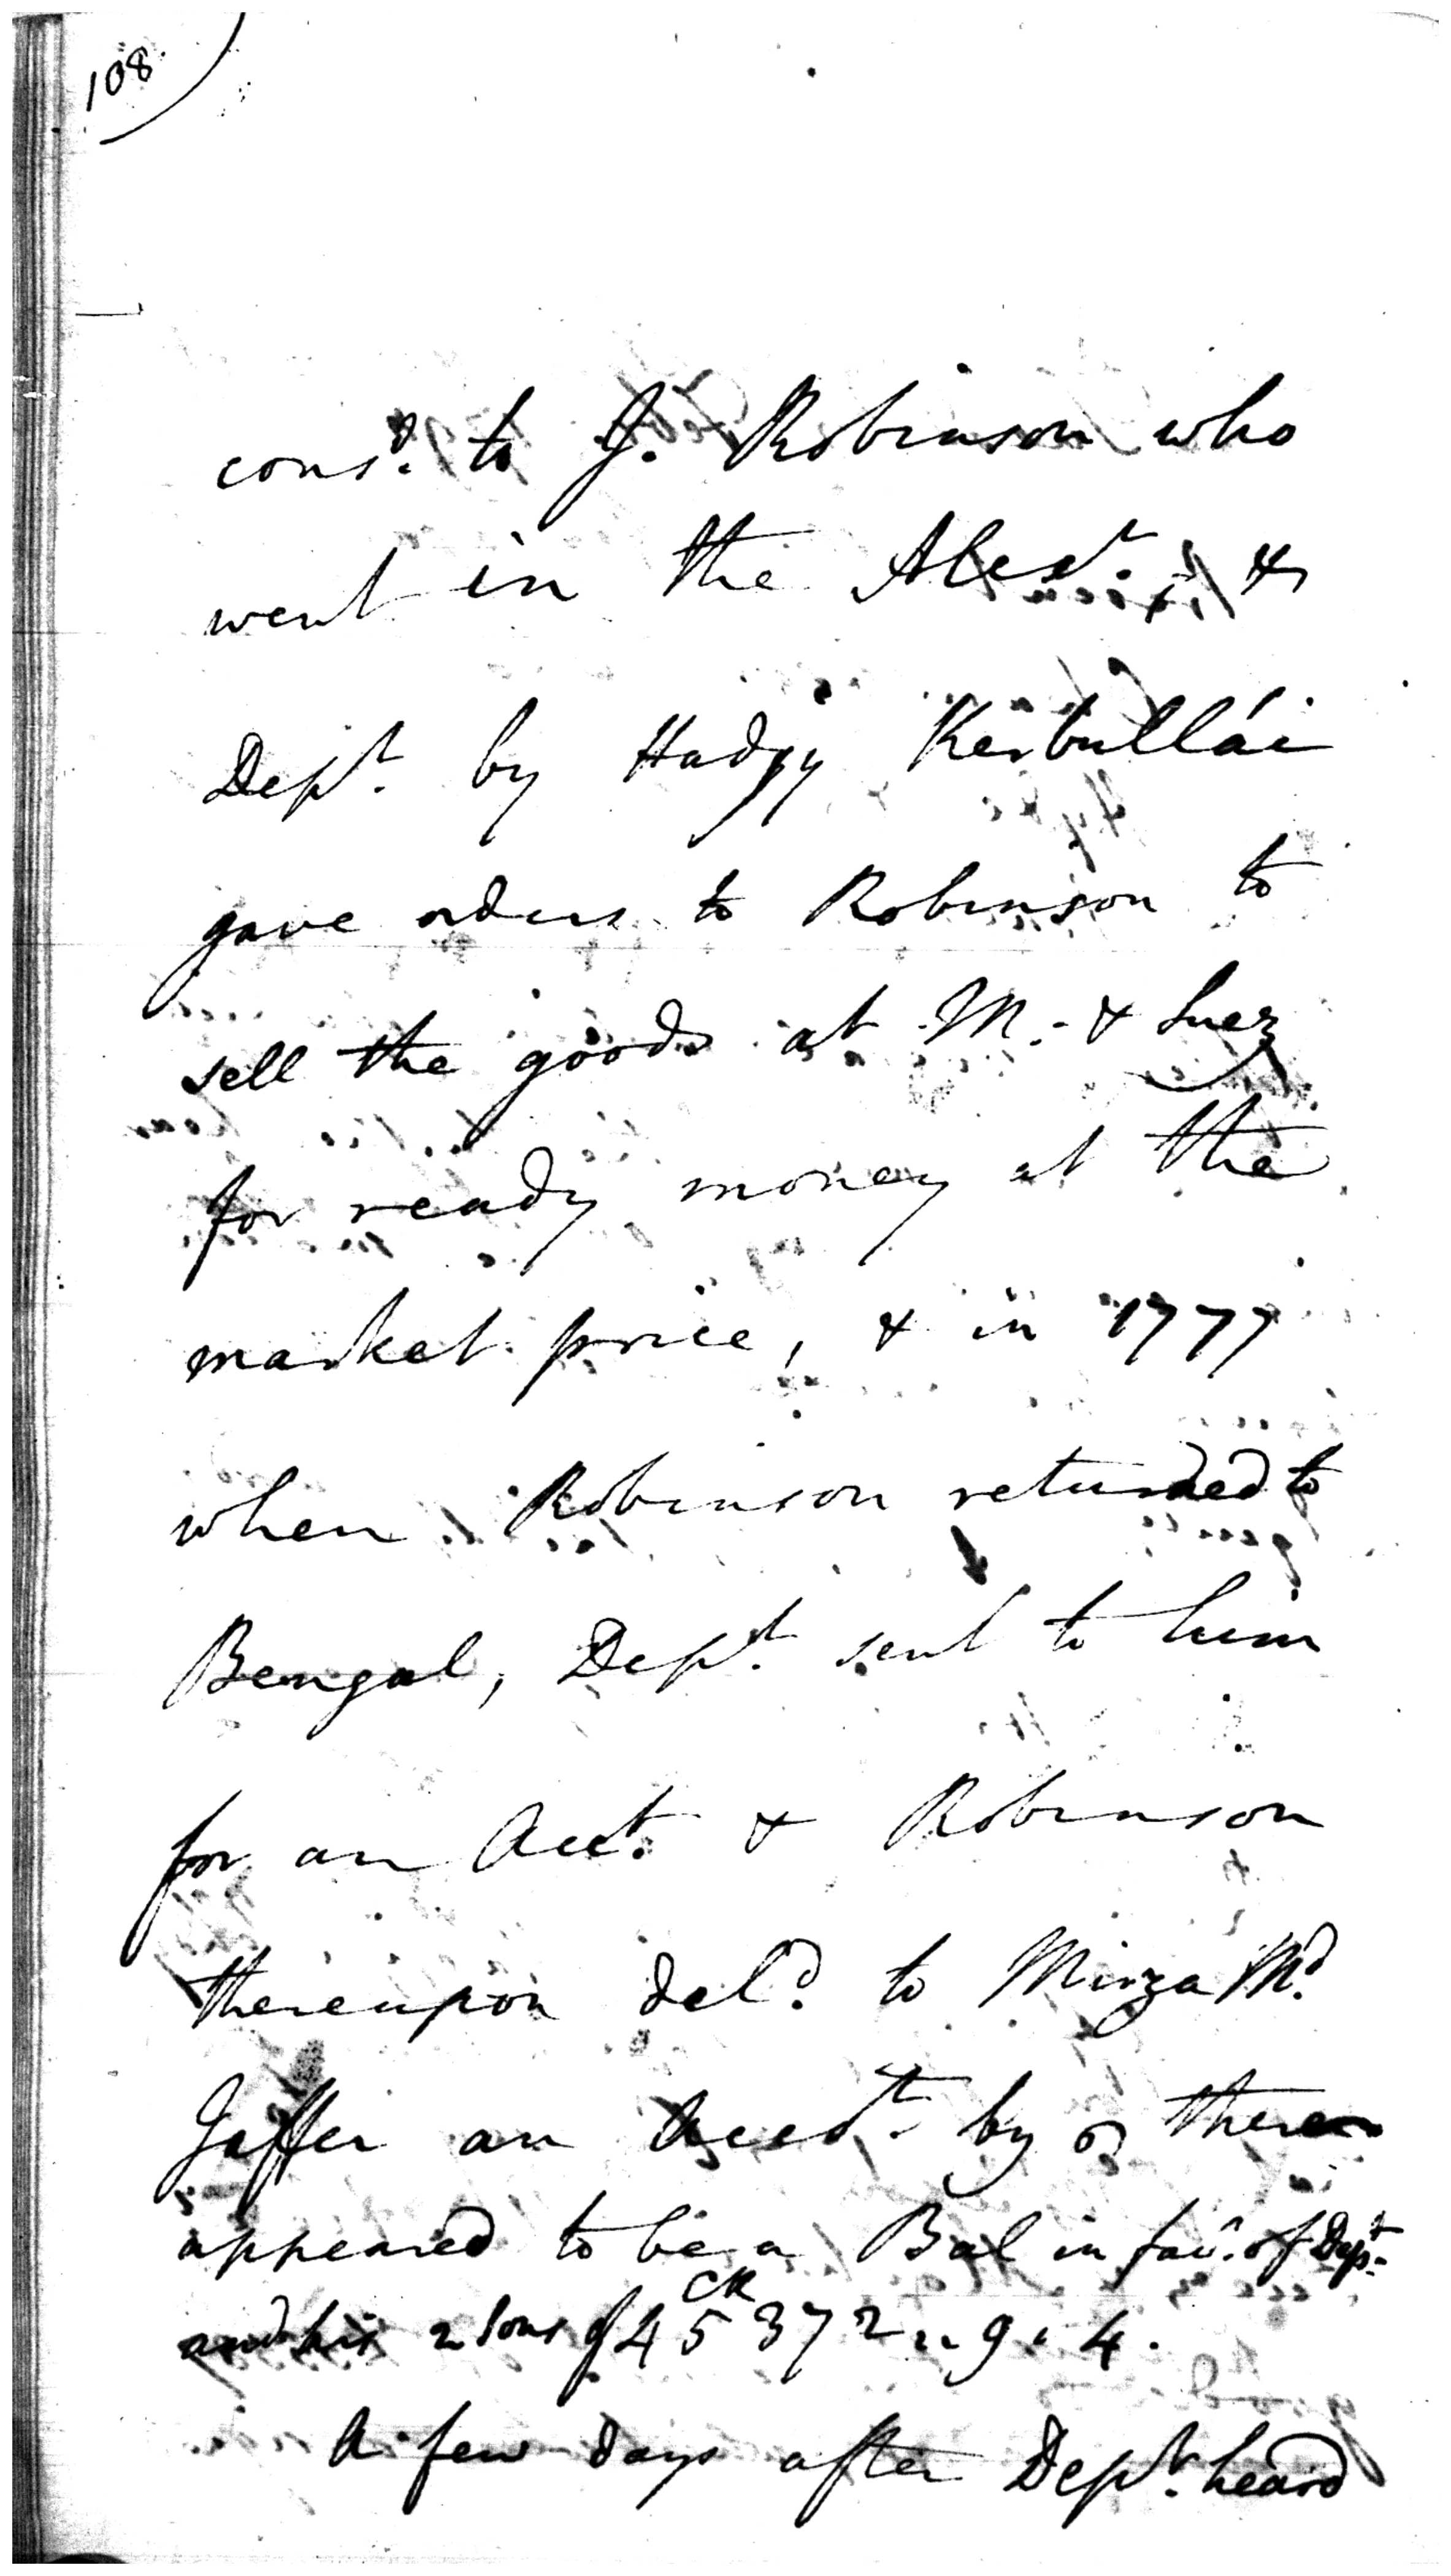 108.
cons.d to J. Robinson who
went in the Alex.r, &
Dep.t by Hadjy Kerbullái
gave orders to Robinson to
sell the goods at M. & Suez
for ready money at the
market price, & in 1777
when Robinson returned to
Bengal, Dep.t sent to him
for an Acc.t & Robinson
thereupon del.d to Mirza M.d
Jaffer an Acco.t by there
appeared to be a Bal in fav.r of Dep.t
and his 2 sons of CR 45372 " 9 " 4.
A few days after Dep.t heard